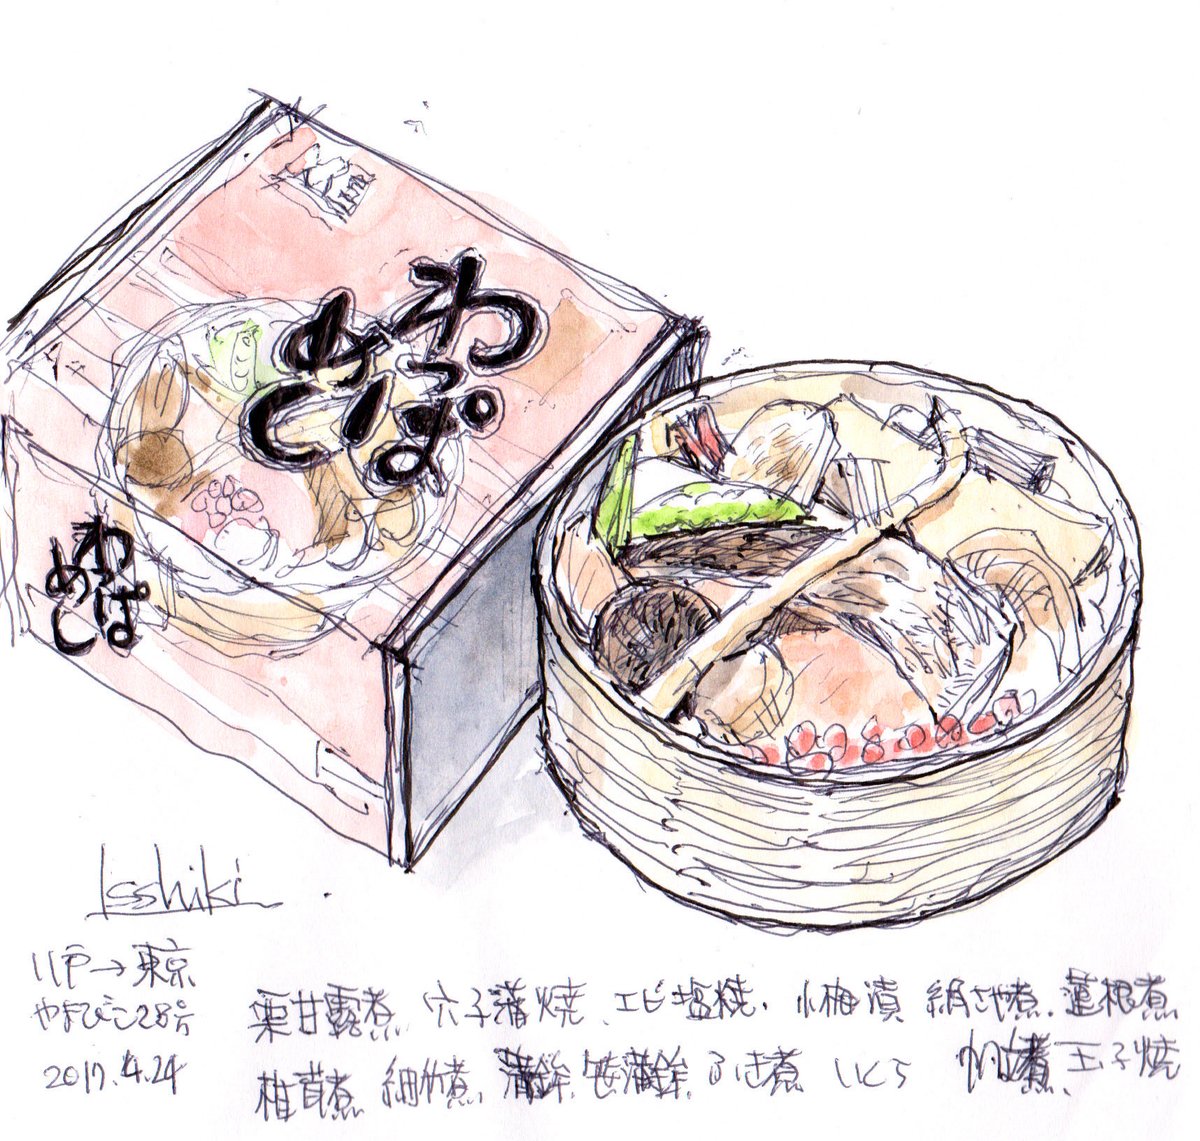 わっぱ
めし
わっぱ
めし
Isshiki
八戸→東京
やまびこ28号
2017.4.24
栗甘露煮、穴子蒲焼、エビ塩焼、小梅漬、絹さや煮、蓮根煮
椎茸煮、細竹煮、蒲鉾、笹蒲鉾、ふき煮、いくら、玉子焼